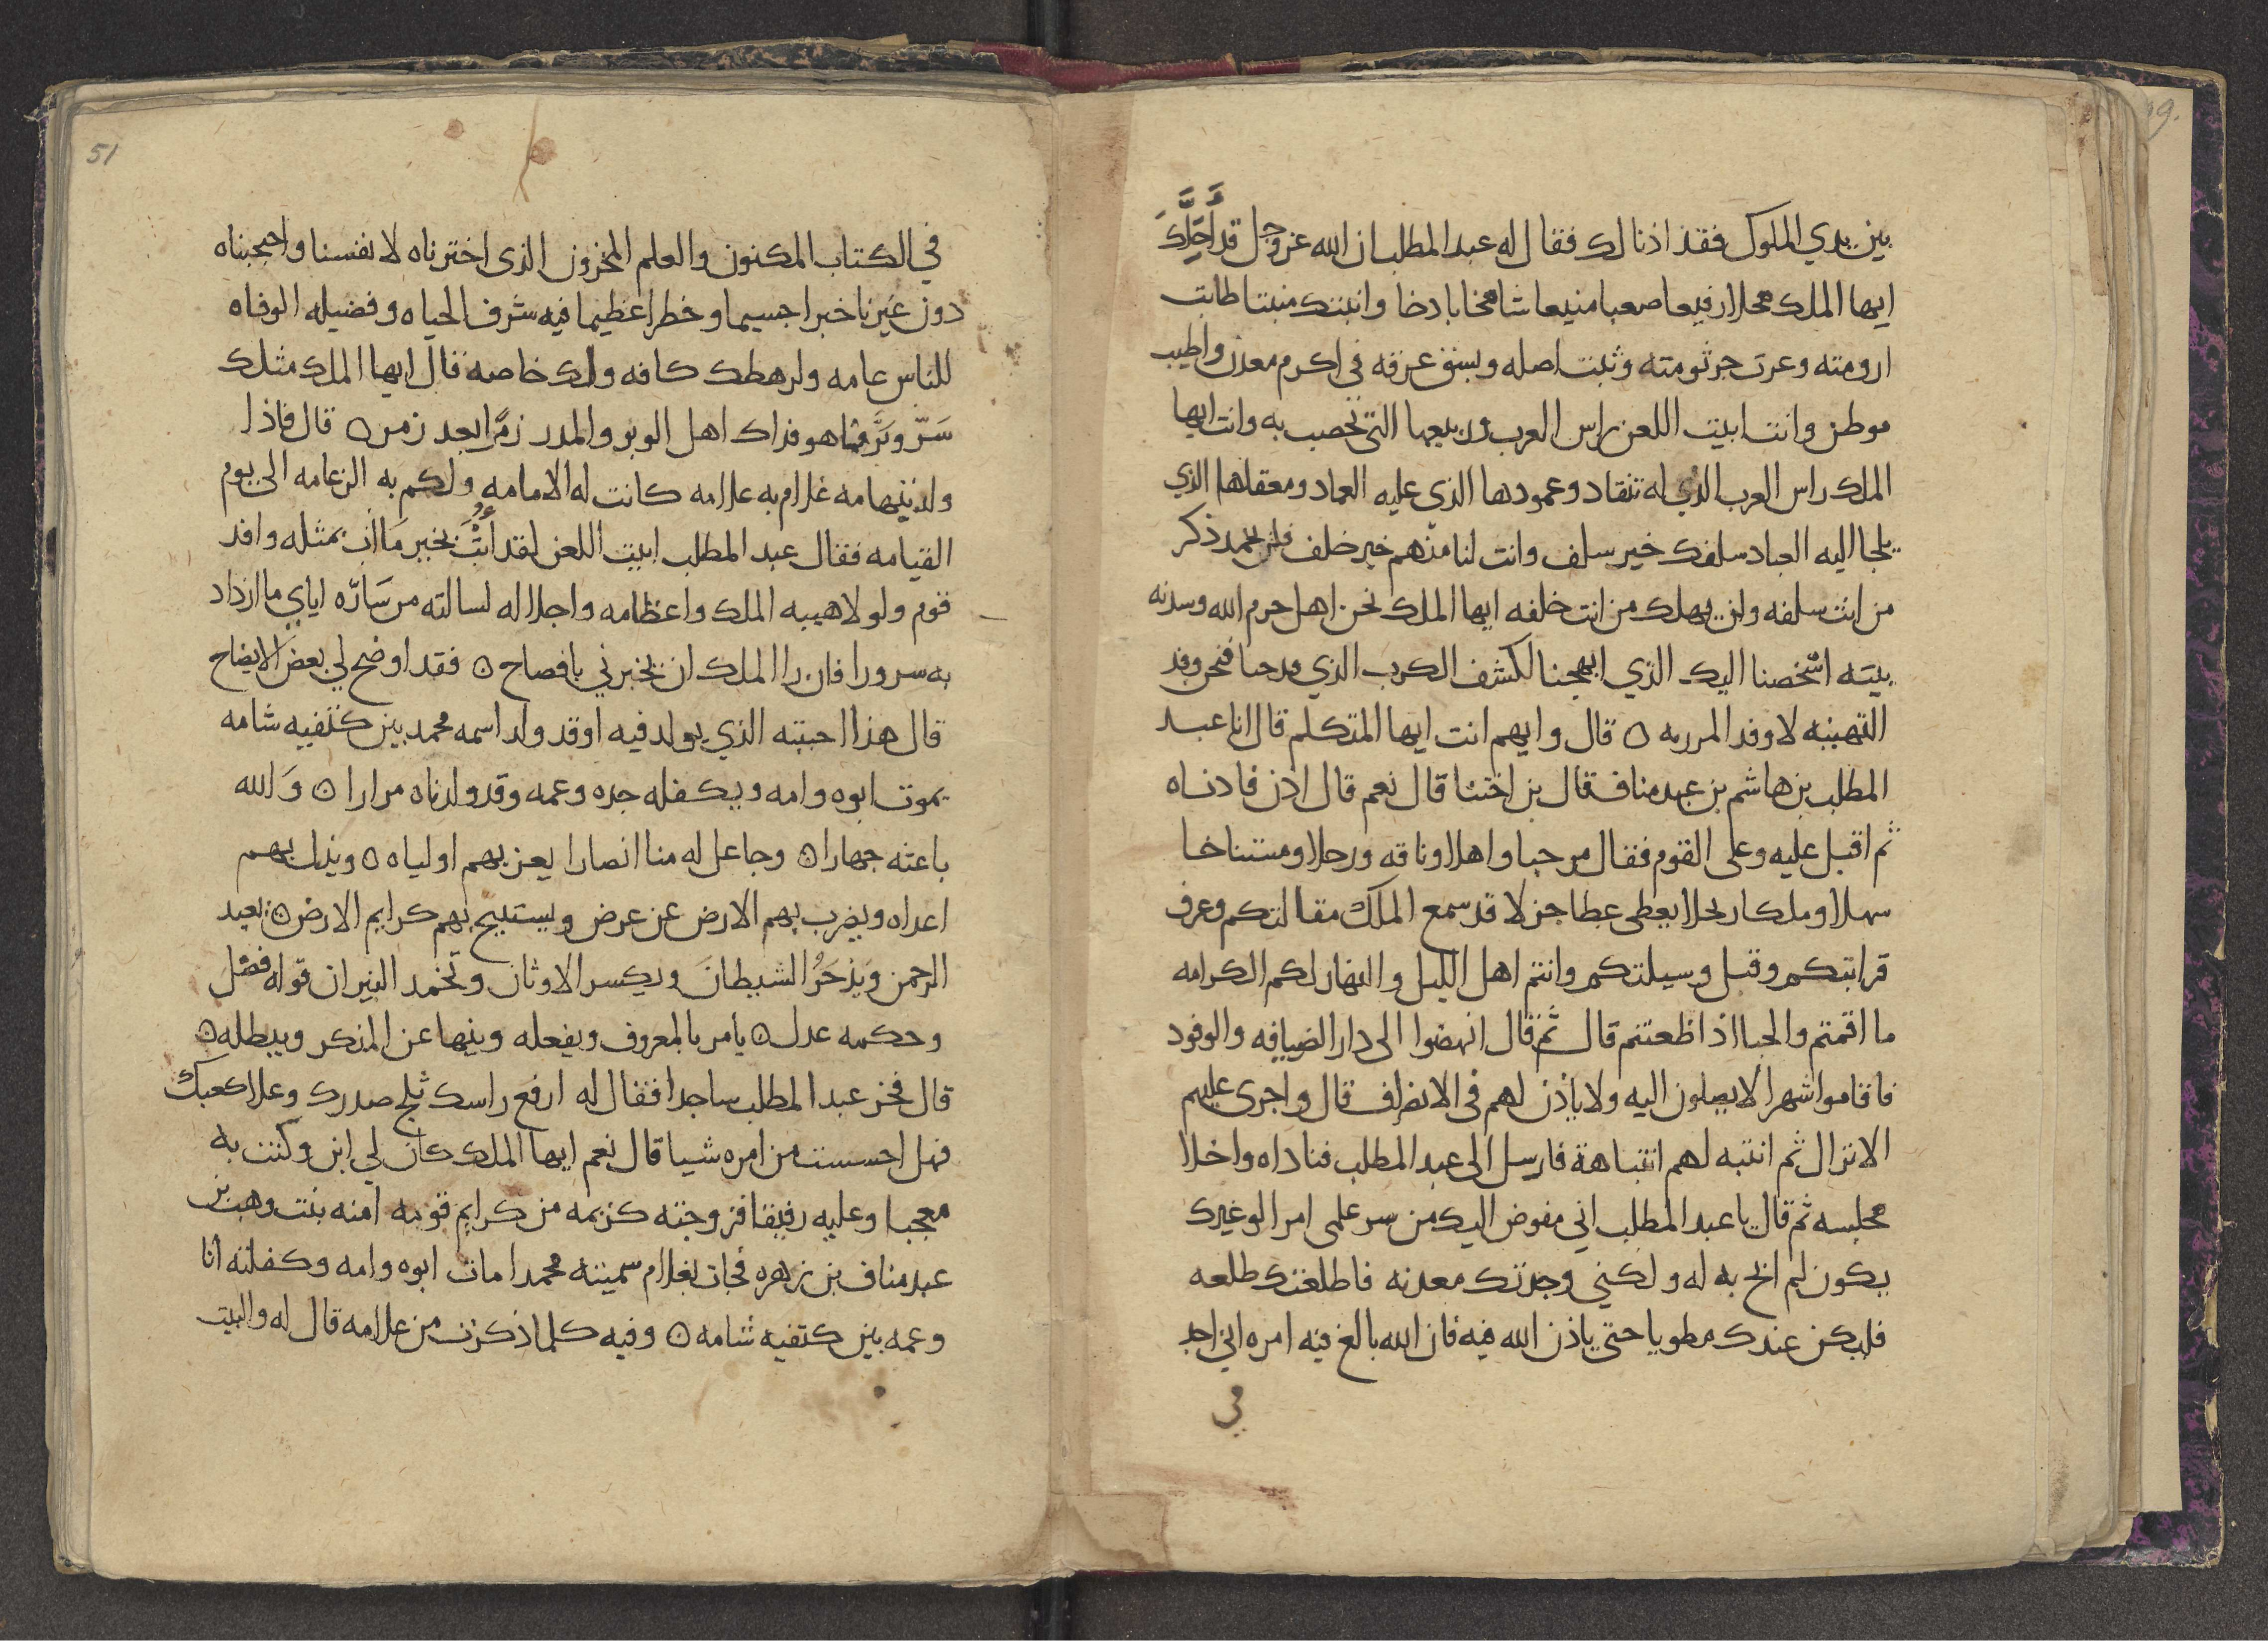 بين يدي الملوك فقد اذنا لك فقال له عبد المطلب ان الله عز وجل قد أحَلَّكَ
ايها الملك محلا رفيعا صعبا منيعا شامخا باذخا وانبتك منبتا طابت
ارومته وعزت جرثومته وثبت اصله وبسق عزفه في اكرم معدن واطيب
موطن وانت ابيت اللعن راس العرب وربيعها التي تخصب به وانت ايها
الملك راس العرب الذي له تنقاد وعمودها الذي عليه العماد ومعقلها الذي
يلجا اليه العباد سلفك خير سلف وانت لنا منهم خير خلف فلن يخمد ذكر
من انت سلفه ولن يهلك من انت خلفه ايها الملك نحن اهل حرم الله وسدنه
بيته اشخصنا اليك الذي ابهجنا لكشف الكرب الذي فدحنا فنحن وفد
التهنيه لا وفد المرزيه ه قال وايهم انت ايها المتكلم قال انا عبد
المطلب بن هاشم بن عبد مناف قال بن اختنا قال نعم قال اذن فادناه
ثم اقبل عليه وعلى القوم فقال مرحبا واهلا وناقه ورحلا ومستناخا
سهلا وملكا ربحلا يعطي عطا جزلا قد سمع الملك مقالتكم وعرف
قرابتكم وقبل وسيلتكم وانتم اهل الليل والنهار لكم الكرامه
ما اقمتم والحبا اذا ظعنتم قال ثم قال انهضوا الى دار الضيافه والوفود
فاقاموا شهرا لا يصلون اليه ولا ياذن لهم في الانصراف قال واجرى عليهم
الانزال ثم انتبه لهم انتباهة فارسل الى عبد المطلب فناداه واخلا
مجلسه ثم قال يا عبد المطلب اني مفوض اليك من سر علمي امرا لو غيرك
يكون لم ابح به له ولكني وجدتك معدنه فاطلعتك طلعه
فليكن عندك مطويا حتى ياذن الله فيه فان الله بالغ فيه امره اني اجد
في
51
في الكتاب المكنون والعلم المخزون الذي اخترناه لانفسنا واحجبناه
دون غيرنا خبرا جسيما وخطرا عظيما فيه شرف الحياه وفضيله الوفاه
للناس عامه ولرهطك كافه ولك خاصه قال ايها الملك مثلك
سَرّ وبَرَّ فما هو فداك اهل الوبر والمدر زمرًا بعد زمر ه قال فاذا
ولد بتهامه غلام به علامه كانت له الامامه ولكم به الزعامه الى يوم
القيامه فقال عبد المطلب ابيت اللعن لقد أُبْتُ بخبر مَا آبَ بمثله وافد
قوم ولولا هيبه الملك واعظامه واجلاله لسالته من سَارّه اياي ما ازداد
به سرورا فان را الملك ان يخبرني بافصاح ه فقد اوضح لي بعض الايضاح
قال هذا احينه الذي يولد فيه اوقد ولد اسمه محمد بين كتفيه شامه
يموت ابوه وامه ويكفله جده وعمه وقد ولدناه مرارا ه وَالله
باعثه جهارا ه وجاعل له منا انصارا يعز بهم اولياه ه ويذل بهم
اعداه ويضرب بهم الارض عن عرض ويستبيح بهم كرايم الارض ه يعبد
الرحمن ويَدْحَرُ الشيطانَ ويكسر الاوثان وتخمد النيران قوله فصل
وحكمه عدل ه يامر بالمعروف ويفعله وينها عن المنكر ويبطله ه
قال فخر عبد المطلب ساجدا فقال له ارفع راسك ثلج صدرك وعلا كعبك
فهل احسست من امره شيا قال نعم ايها الملك كان لي ابن وكنت به
معجبا وعليه رفيقا فزوجته كريمه من كرايم قومه امنه بنت وهب بن
عبد مناف بن زهره فجات بغلام سميته محمدا مات ابوه وامه وكفلته انا
وعمه بين كتفيه شامه ه وفيه كلما ذكرت من علامه قال له والبيت